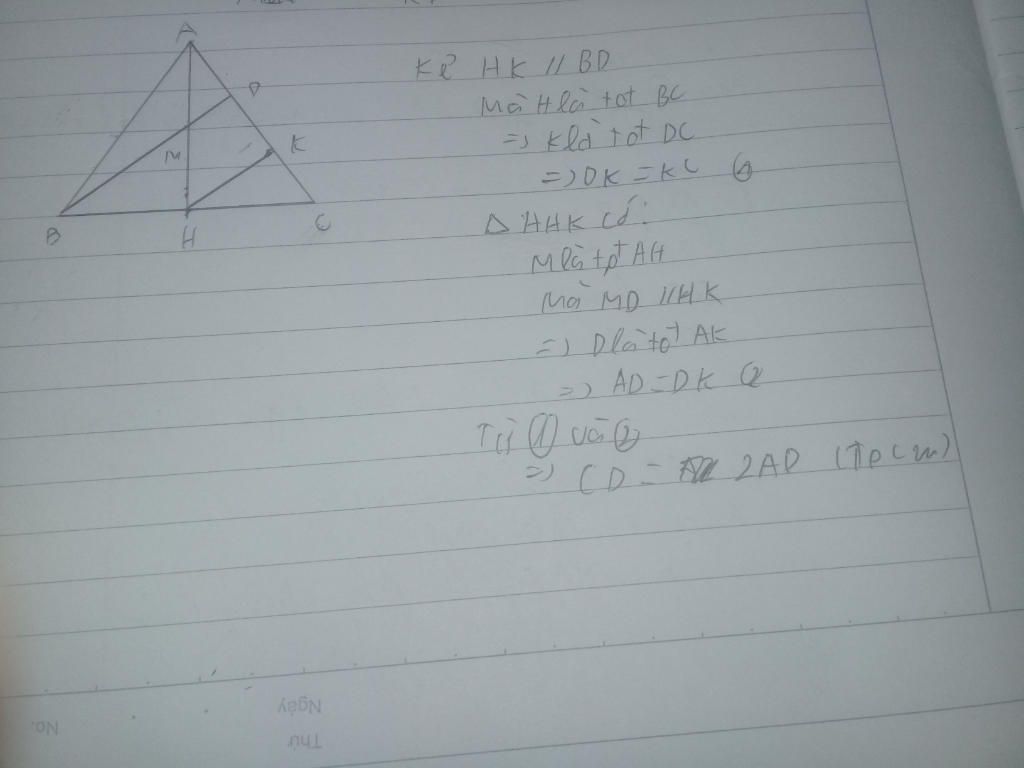 A
D
M
K
B
H
C
Kẻ HK // BD
Mà H là tđt BC
=> K là tđt DC
=> DK = KC ①
△ AHK Có:
M là tpt AH
Mà MD // HK
=> D là tđt AK
=> AD = DK ②
Từ ① và ②
=> CD = 2AD (Tpcm)
Ngày
Thứ
No.